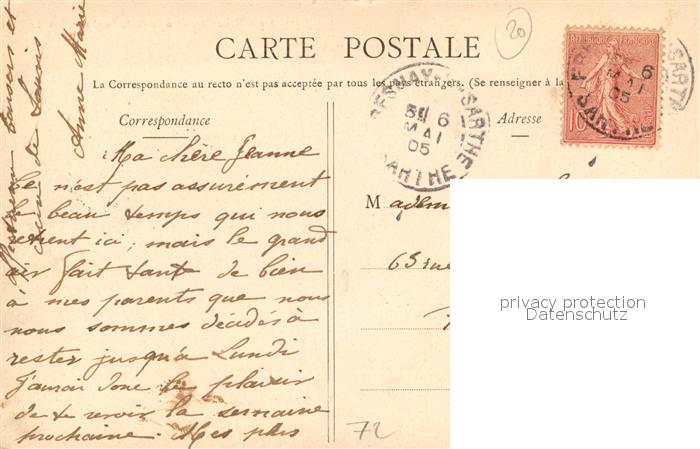 20
CARTE POSTALE
La Correspondance au recto n'est pas acceptée par tous les pays étrangers. (Se renseigner à la
Correspondance
Adresse
Ma chère Jeanne
Ce n'est pas assurément
le beau temps qui nous
retient ici, mais le grand
air fait tant de bien
à mes parents que nous
nous sommes décidés à
rester jusqu'à Lundi
J'aurai donc le plaisir
de te revoir la semaine
prochaine. Mes plus
baisers et
de Louis
Anne Marie
FRESNAY-S-SARTHE
6
MAI
05
SARTHE
10
SARTHE
6
MAI
05
Madem
63 rue
72
privacy protection
Datenschutz